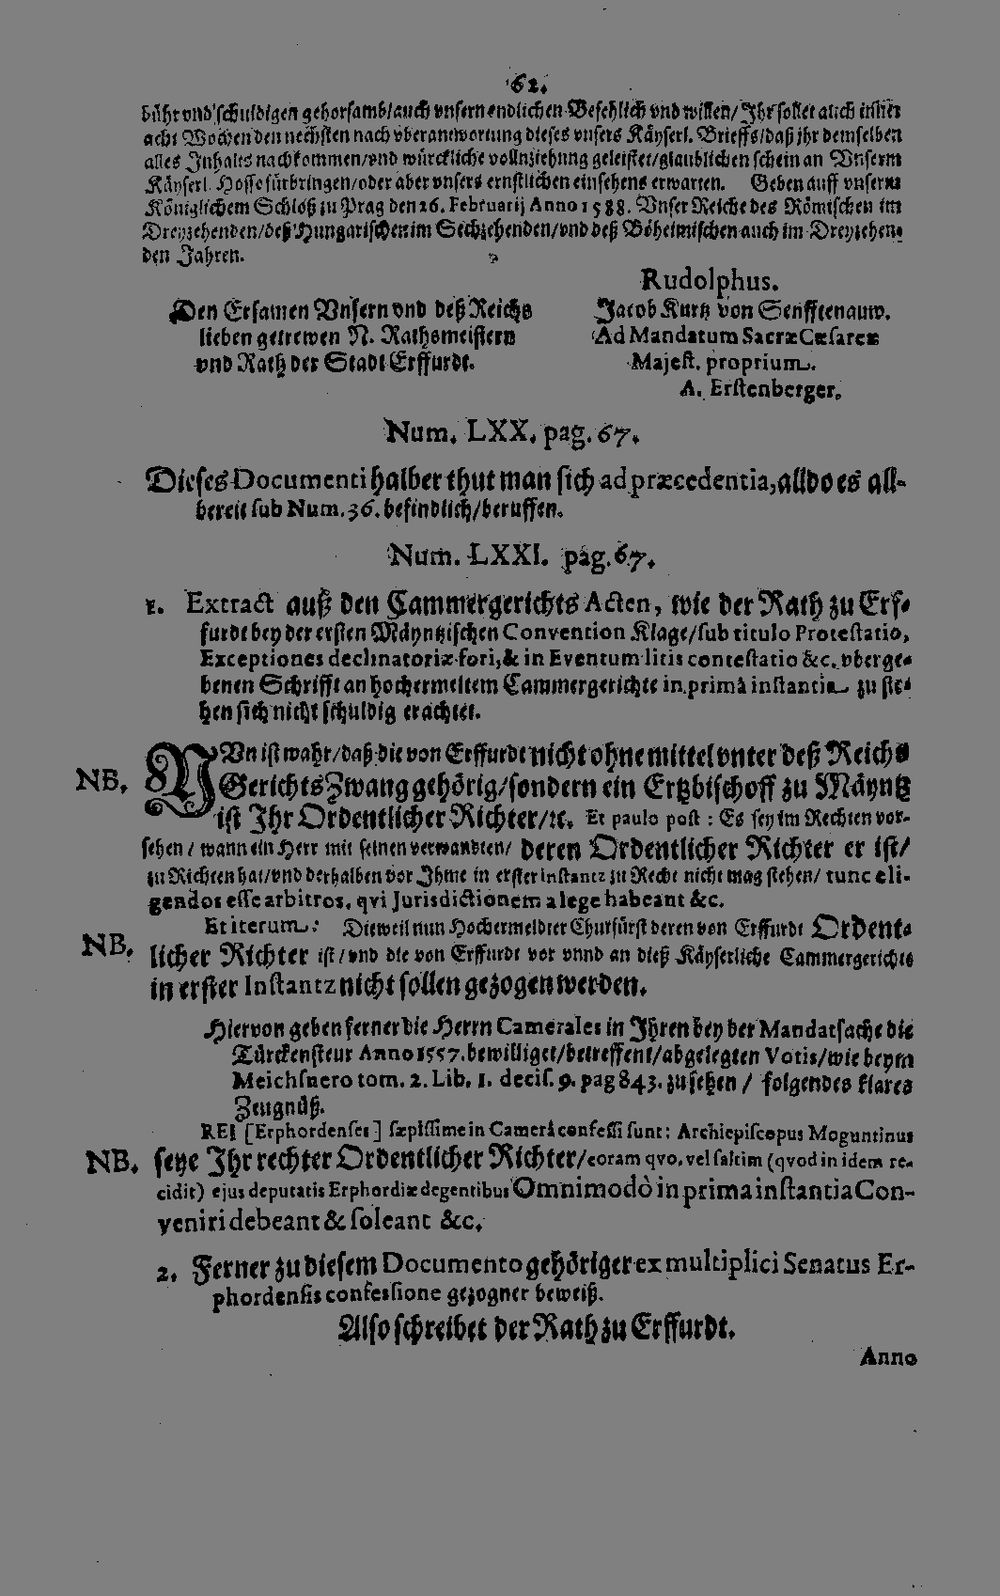 62.
bühr vnd schuldigen gehorsamb/auch vnsern endlichen Befehlich vnd willen/Ihr sollet auch inner
acht Wochen den nechsten nach vberantwortung dieses vnsers Käyserl. Brieffs/daß jhr demselben
alles Inhalts nachkommen/vnd würckliche vollnziehung geleistet/glaublichen schein an Vnserm
Käyserl. Hoffe fürbringen/oder aber vnsers ernstlichen einsehens erwarten. Geben auff vnserm
Königlichem Schloß zu Prag den 26. Februarij Anno 1588. Vnser Reiche des Römischen im
Dreyzehenden/deß Hungarischen im Sechzehenden/vnd deß Böheimischen auch im Dreyzehen-
den Jahren.
Rudolphus.
Den Ersamen Vnsern vnd deß Reichs
lieben getrewen N. Rathsmeistern
vnd Rath der Stadt Erffurdt.
Jacob Kurtz von Senfftenauw.
Ad Mandatum Sacræ Cæsareæ
Majest. proprium.
A. Erstenberger.
Num. LXX. pag. 67.
Dieses Documenti halber thut man sich ad præcedentia, alldo es all-
bereit sub Num. 36. befindlich/beruffen.
Num. LXXI. pag. 67.
1. Extract auß den Cammergerichts Acten, wie der Rath zu Erf-
furdt bey der ersten Mäyntzischen Convention Klage/sub titulo Protestatio,
Exceptiones declinatoriæ fori, & in Eventum litis contestatio &c. vberge-
benen Schrifft an hochermeltem Cammergerichte in primâ instantia zu ste-
hen sich nicht schuldig erachtet.
NVn ist wahr/daß die von Erffurdt nicht ohne mittel vnter deß Reichs
NB. Gerichts Zwang gehörig/sondern ein Ertzbischoff zu Mäyntz
ist Ihr Ordentlicher Richter/ꝛc. Et paulo post: Es sey im Rechten vor-
sehen/ wann ein Herr mit seinen verwandten/ deren Ordentlicher Richter er ist/
zu Richten hat/vnd derhalben vor Ihme in erster Instantz zu Recht nicht mag stehen/ tunc eli-
gendos esse arbitros, qvi Jurisdictionem a lege habeant &c.
Et iterum: Dieweil nun Hochermeldter Churfürst deren von Erffurdt Ordent-
NB. licher Richter ist/vnd die von Erffurdt vor vnnd an dieß Käyserliche Cammergerichts
in erster Instantz nicht sollen gezogen werden.
Hiervon geben ferner die Herrn Camerales in Ihren bey der Mandatsache die
Türckensteur Anno 1557. bewilliget/betreffent/abgelegten Votis/wie beym
Meichsnero tom. 2. Lib. 1. decis. 9. pag 843. zu sehen / folgendes klares
Zeugnüß.
REI [Erphordenses] sæpissime in Camerâ confessi sunt: Archiepiscopus Moguntinus
NB. seye Ihr rechter Ordentlicher Richter/coram qvo, vel saltim (qvod in idem re-
cidit) ejus deputatis Erphordiæ degentibus Omnimodò in prima instantia Con-
veniri debeant & soleant &c.
2. Ferner zu diesem Documento gehöriger ex multiplici Senatus Er-
phordensis confessione gezogner beweiß.
Also schreibet der Rath zu Erffurdt.
Anno